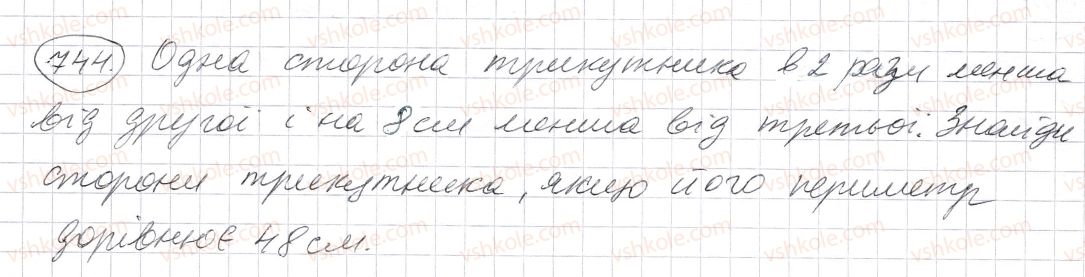 744. Одна сторона трикутника в 2 рази менша
від другої і на 8 см менша від третьої. Знайди
сторони трикутника, якщо його периметр
дорівнює 48 см.